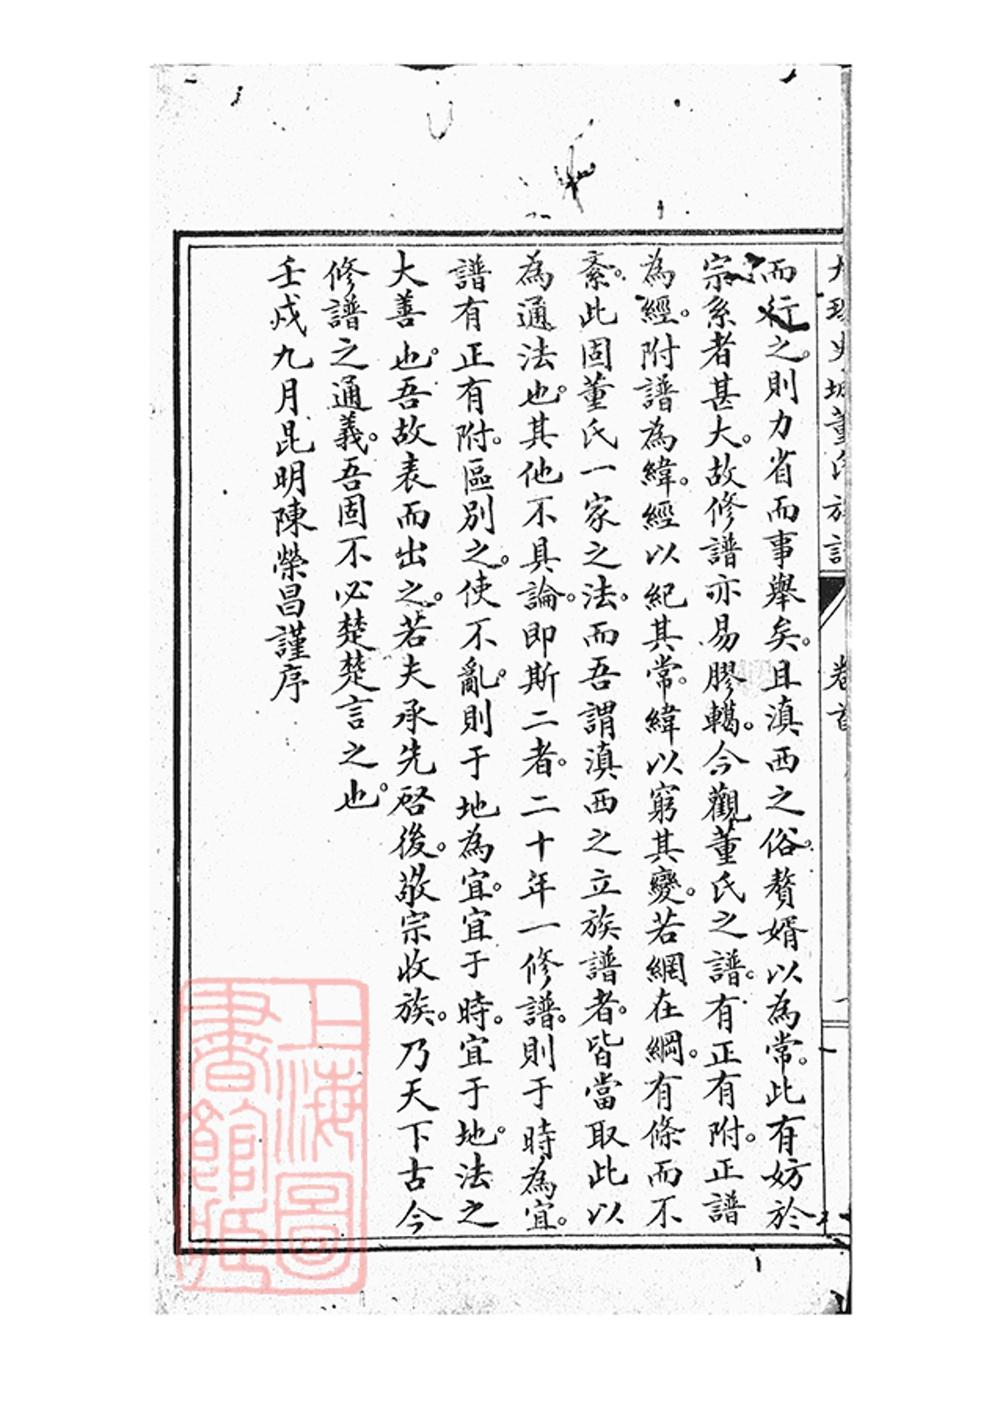 大理史城董氏族譜 卷首
而行之。則力省而事舉矣。且滇西之俗。贅婿以為常。此有妨於
宗系者甚大。故修譜亦易膠轕。今觀董氏之譜。有正有附。正譜
為經。附譜為緯。經以紀其常。緯以窮其變。若網在綱。有條而不
紊。此固董氏一家之法。而吾謂滇西之立族譜者。皆當取此以
為通法也。其他不具論。即斯二者。二十年一修譜。則于時為宜。
譜有正有附。區別之。使不亂。則于地為宜。宜于時。宜于地。法之
大善也。吾故表而出之。若夫承先啓後。敬宗收族。乃天下古今
修譜之通義。吾固不必楚楚言之也。
壬戌九月昆明陳榮昌謹序
上海圖
書館藏